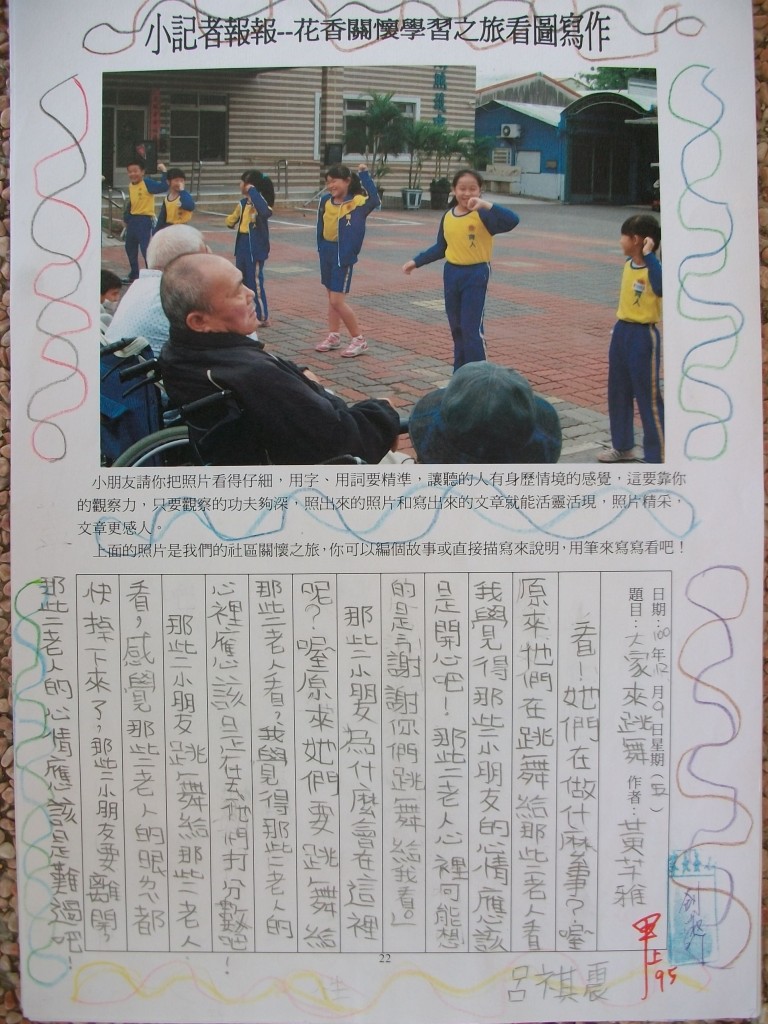 小記者報報--花香關懷學習之旅看圖寫作
小朋友請你把照片看得仔細，用字、用詞要精準，讓聽的人有身歷情境的感覺，這要靠你
的觀察力，只要觀察的功夫夠深，照出來的照片和寫出來的文章就能活靈活現，照片精采，
文章更感人。
上面的照片是我們的社區關懷之旅，你可以編個故事或直接描寫來說明，用筆來寫寫看吧！
日期：100年12月9日星期（五）
題目：大家來跳舞 作者：黃芊雅
看！她們在做什麼事？喔
原來他們在跳舞給那些老人看
我覺得那些小朋友的心情應該
是開心吧！那些老人心裡可能想
的是「謝謝你們跳舞給我看。」
那些小朋友為什麼會在這裡
呢？喔原來她們要跳舞給
那些老人看？我覺得那些老人的
心裡應該是在幫他們打分數吧！
那些小朋友跳舞給那些老人
看，感覺那些老人的眼忽都
快掉下來了，那些小朋友要離開，
那些老人的心情應該是難過吧！
甲上
95
22
呂祺震